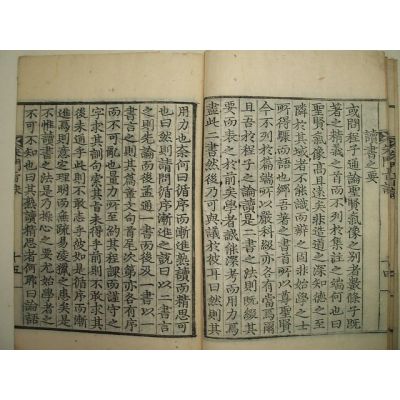 讀書之要
或問程子通論聖賢氣象之別者數條子既
著之精義之首而不列於集註之端何也曰
聖賢氣象高且遠矣非造道之深知德之至
隣於其域者不能識而辨之固非始學之士
所得驟而語也鄉吾著之書首所以尊聖賢
今不列於篇端所以嚴科級亦各有當焉爾
且吾於程子之論讀是二書之法則既掇其
要而表之於前矣學者誠能深考而用力焉
盡此二書然後乃可與議於彼耳曰然則其
用力也奈何曰循序而漸進熟讀而精思可
也曰然則請問循序漸進之說曰以二書言
之則先論而後孟通一書而後及一書以一
書言之則其篇章文句首尾次第亦各有序
而不可亂也量力所至約其程課而謹守之
字求其訓句索其旨未得乎前則不敢求其
後未通乎此則不敢志乎彼如是循序而漸
進焉則意定理明而無疏易凌躐之患矣是
不惟讀書之法是乃操心之要尤始學者之
不可不知也曰其熟讀精思者何耶曰論語
十五